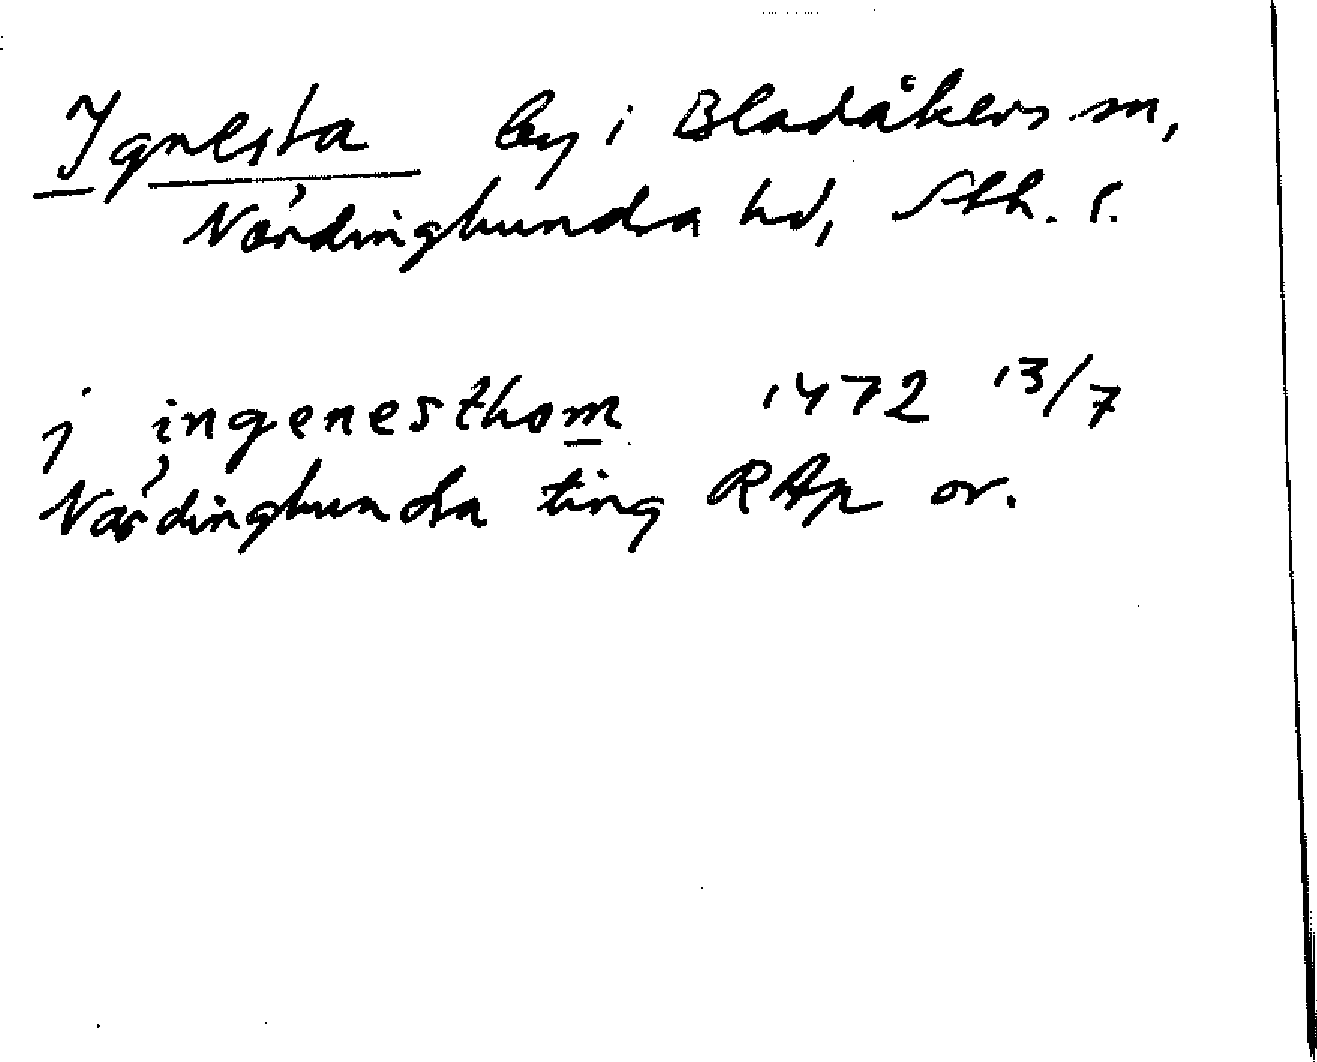 Ignesta by i Bladåkers sn,
Närdinghundra hd, Sth. l.
j ingenesthom 1472 13/7
Närdinghundra ting RAp or.